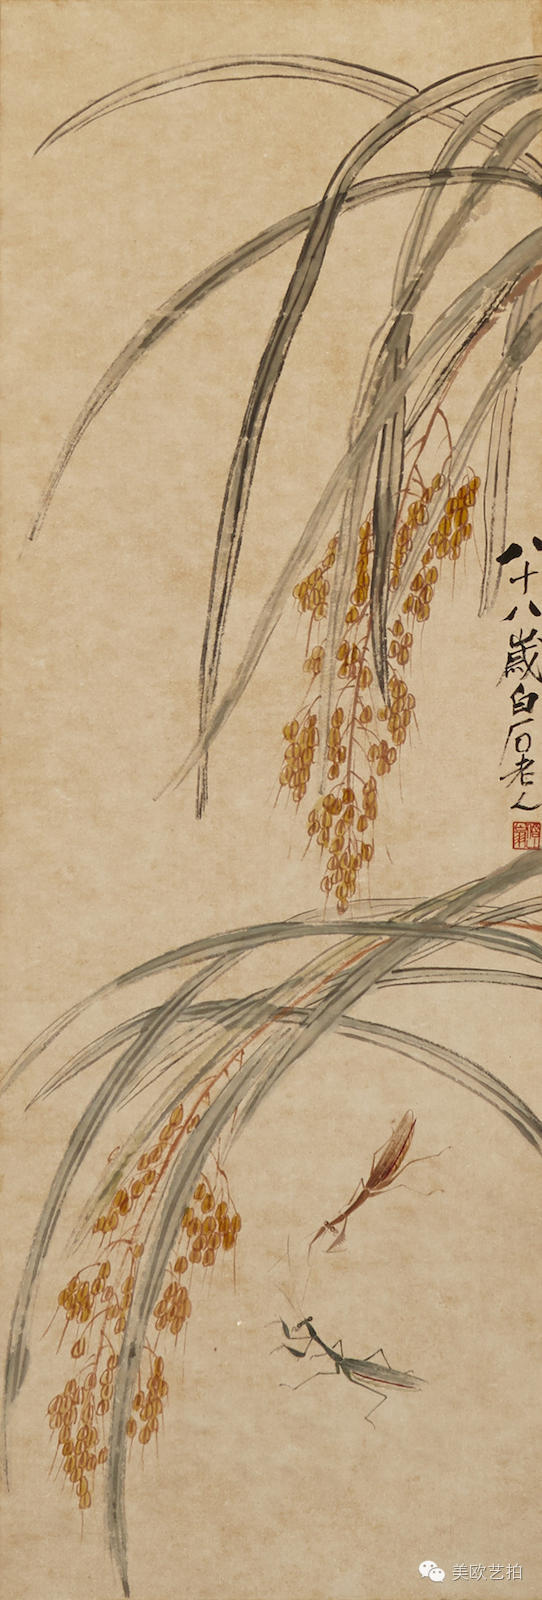 八十八歲白石老人
美欧艺拍